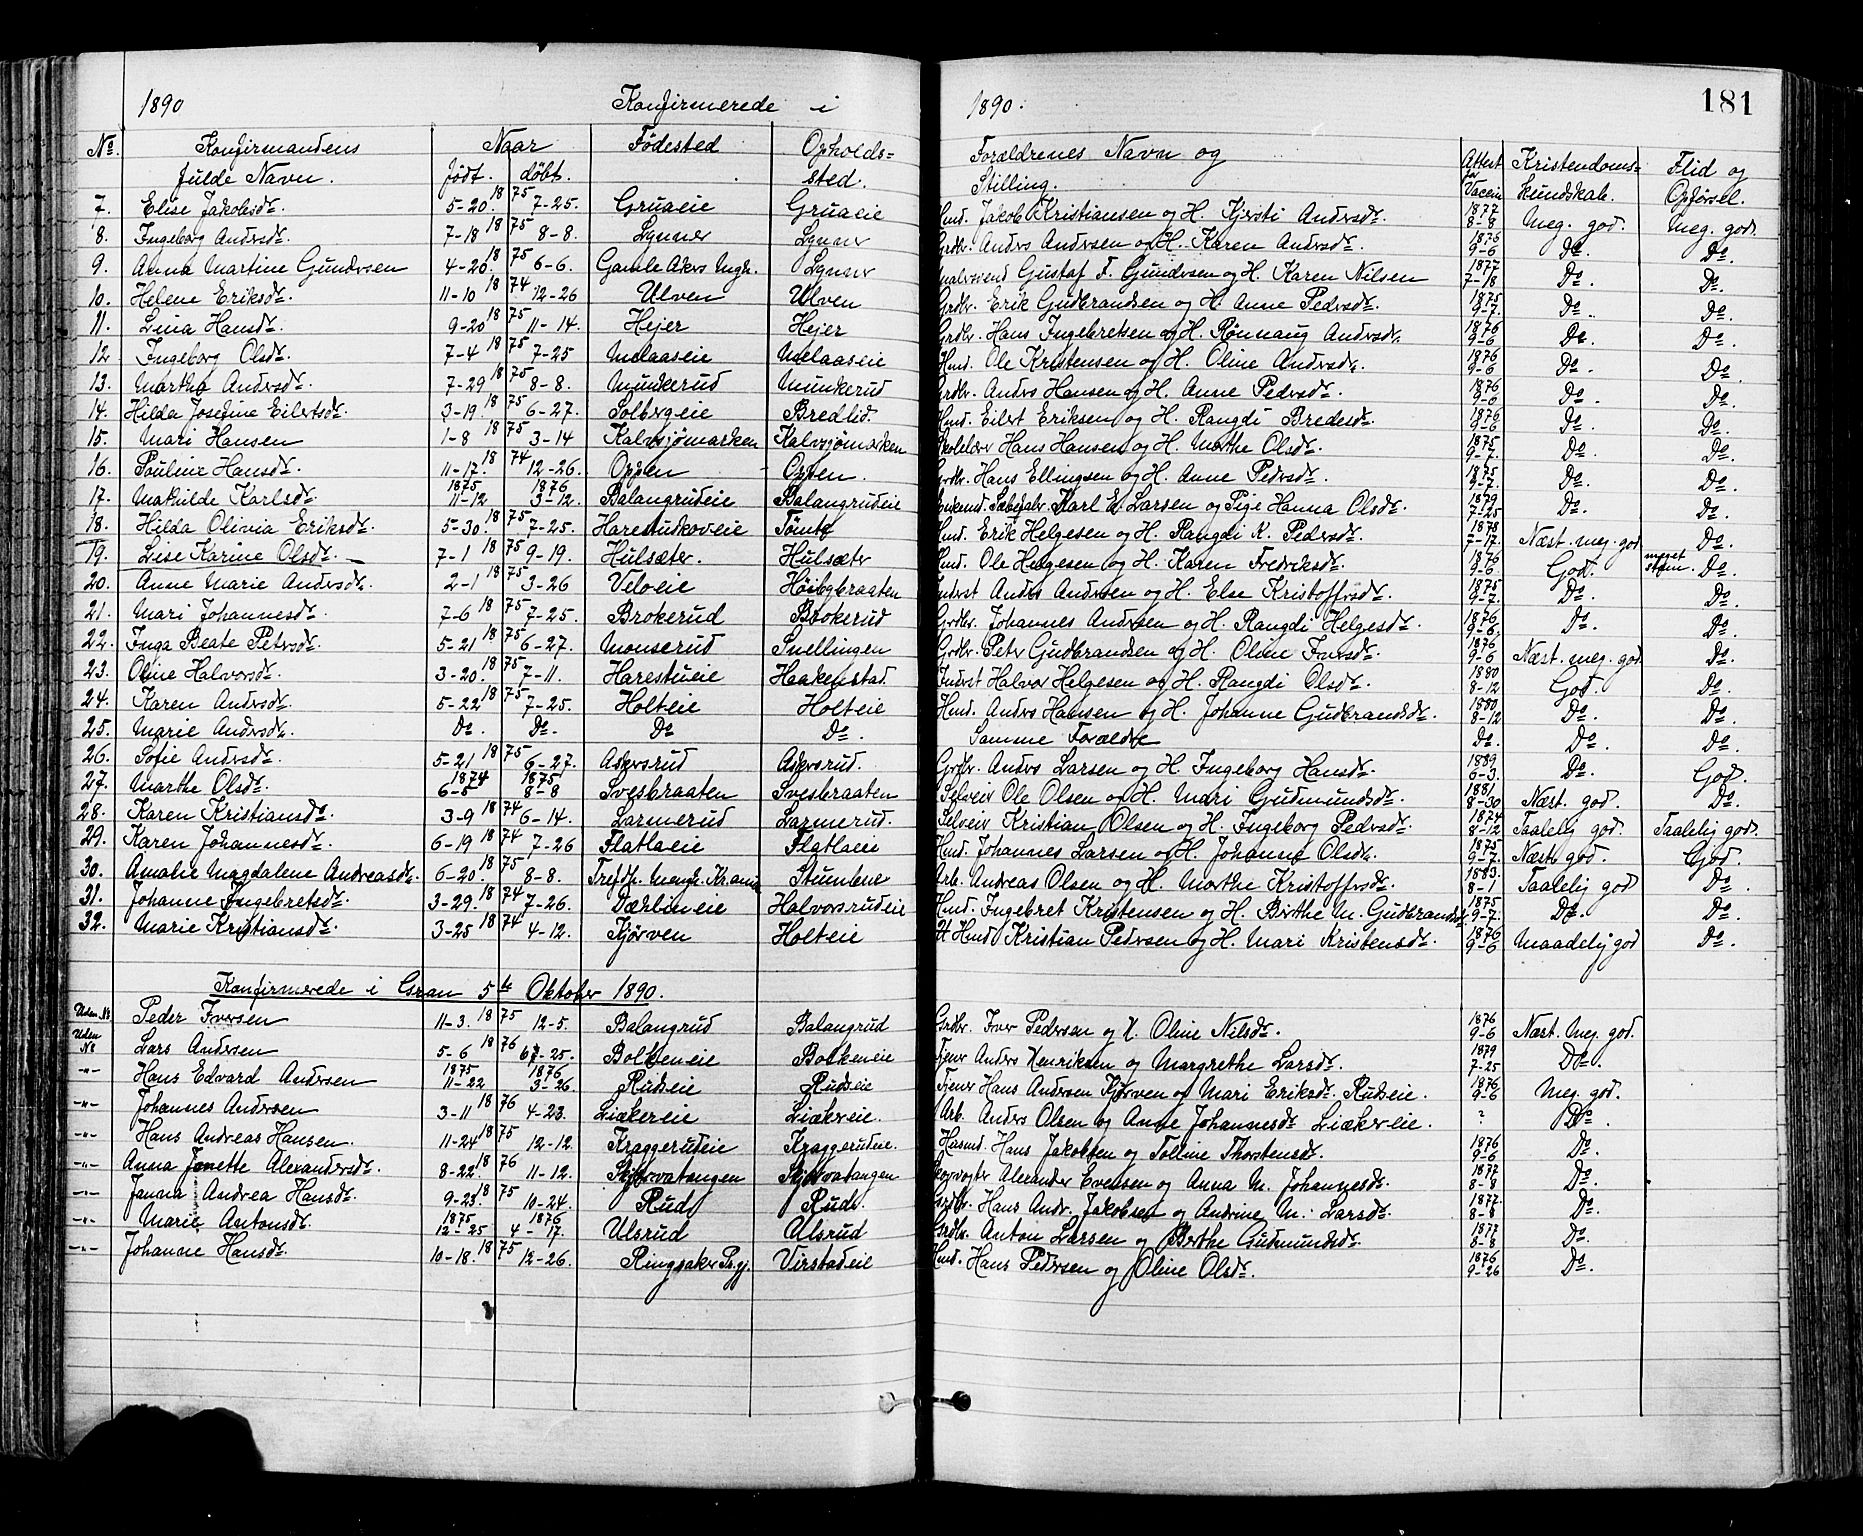 1890 Konfirmerede i 1890. 181
No. Konfirmandens fulde Navn. Naar født. døbt. Fødested Opholds=sted. Forældrenes Navn og Stilling. Attest for Vaccin Kristendoms=kundskab. Flid og Opførsel.
7. Elise Jakobsdr. 5-20. 18 75 7-25. Gruaeie Gruaeie Hmd. Jakob Kristiansen og H. Kjersti Andersdr. 1877 8-8 Meg. god. Meg. god.
8. Ingeborg Andersdr. 7-18 18 75 8-8. Lynner Lynner Grdbr. Anders Andersen og H. Karen Andersdr. 1876 9-6 Do. Do.
9. Anna Martine Gundersen 4-20. 18 75 6-6. Gamle Akers Mngh. Lynner Gustaf F. Gundersen og H. Karen Nilsen 1877 7-18 Do. Do.
10. Helene Eriksdr. 11-10 18 74 12-26 Ulven Ulven Grdbr. Erik Gudbrandsen og H. Anne Pedersdr. 1875 9-7. Do. Do.
11. Lina Hansdr. 9-20 18 75 11-14. Hejer Hejer Grdbr. Hans Ingebretsen og H. Rønnaug Andersdr. 1876 9-6 Do. Do.
12 Ingeborg Olsdr. 7-4 18 75 7-25 Melaaseie Melaaseie Hmd. Ole Kristensen og H. Oline Andersdr. 1876 9-6 Do. Do.
13. Marthe Andersdr. 7-29 18 75 8-8. Munkerud Munkerud Grdbr. Anders Hansen og H. Anne Pedersdr. 1876 9-6 Do. Do.
14. Hilda Josefine Eilertsdr. 3-19. 18 75 6-27. Solbergeie Bredlid. Hmd. Eilert Eriksen og H. Rangdi Bredesdr. 1876 9-6 Do. Do.
15. Mari Hansen 1-8 18 75 3-14 Kalvsjømarken Kalvsjømarken Skolelærer Hans Hansen og H. Marthe Olsdr. 1875 9-7. Do. Do.
16. Pauline Hansdr. 11-17. 18 74 12-26. Oppen Oppen. Grdbr. Hans Ellingsen og H. Anne Pedersdr. 1875 9-7. Do. Do.
17. Mathilde Karlsdr. 1875 11-12 1876 3-12. Balangrudeie Balangrudeie Enkemd. Karl E. Larsen og Pige Hanna Olsdr. 1879 7-25 Do. Do.
18. Hilda Olivia Eriksdr. 5-30. 18 75 7-25. Harestuskoveie Tømte Hmd. Erik Helgesen og H. Rangdi K. Pedersdr. 1878 7-17. Næst. meg. god Do.
19. Lise Karine Olsdr. 7-1 18 75 9-19. Hulsæter. Hulsæter Hmd. Ole Helgesen og H. Karen Fredriksdr. 1876 9-6 God. meget Do.
20. Anne Marie Andersdr. 2-1 18 75 3-26 Veloeie Høibybraaten Inderst Anders Andersen og H. Else Kristoffersdr. 1875 9-7. Do. Do.
21. Mari Johannesdr. 7-6 18 75 7-25. Brokerud Brokerud Grdbr. Johannes Andersen og H. Rangdi Helgesdr. 1876 9-6. Do. Do.
22. Inga Beate Petersdr. 5-21 18 75 6-27. Monserud Snellingen Grdbr. Peter Gudbrandsen og H. Oline Iversdr. 1876 9-6 Næst. meg. god. Do.
23. Oline Halvorsdr. 3-20. 18 75 7-11. Harestueie Haakenstad. Inderst Halvor Helgesen og H. Rangdi Olsdr. 1880 8-12 God. Do.
24. Karen Andersdr. 5-22 18 75 7-25. Holteie Holteie Hmd. Anders Hansen og H. Johanne Gudbrandsdr. 1880. 8-12 Do. Do.
25. Marie Andersdr. Do. Do. Do Do. Samme Forældre Do. Do. Do.
26. Sofie Andersdr. 5-21 18 75 6-27. Askersrud Askersrud. Grdbr. Anders Larsen og H. Ingeborg Hansdr. 1889 6-3. Do. God.
27. Marthe Olsdr. 1874 6-5 1875 8-8 Svesbraaten Svesbraaten Selveier Ole Olsen og H. Mari Gudmundsdr. 1881 8-30 Næst. god. Do.
28. Karen Kristiansdr. 3-9 18 74 6-14. Larmerud Larmerud. Selveier Kristian Olsen og H. Ingeborg Pedersdr. 1874 8-12 Taalelig god. Taalelig god.
29. Karen Johannesdr. 6-19 18 74 7-26 Flatlaeie Flatlaeie Hmd. Johannes Larsen og H. Johanne Olsdr. 1875 9-7. Næst. god. God.
30. Amalie Magdalene Andreasdr. 6-20. 18 75 8-8. Stumbne Arb. Andreas Olsen og H. Marthe Kristoffersdr. 1883. 8-1 Taalelig god Do.
31. Johanne Ingebretsdr. 3-29. 18 74 7-26. Dæhlineie Halvorsrudeie Hmd. Ingebret Kristensen og H. Birthe M. Gudbrandsdr. 1875 9-7. Do. Do.
32. Marie Kristiansdr. 3-25 18 74 4-12. Kjørven Holteie Hmd Kristian Pedersen og H. Mari Kristensdr. 1876 9-6 Maadelig god Do.
Konfirmerede i Gran 5te Oktober 1890.
Uden No Peder Iversen 11-3. 18 75 12-5. Balangrud Balangrud Grdbr. Iver Pedersen og H. Oline Nilsdr. 1876 9-6 Næst. Meg. god.
Uden No Lars Andersen 5-6 18 76 7-25. Bolkeneie Bolkeneie Anders Henriksen og Margrethe Larsdr. 1879 7-25 Do.
-"- Hans Edvard Andersen 1875 11-22 1876 3-26. Rudseie Rudseie Hans Andersen Kjørven og Mari Eriksdr. Rudseie. 1876 9-6 Meg. god.
-"- Johannes Andersen 3-11 18 76 4-23. Liækereie Liækereie. Arb. Anders Olsen og Anne Johannesdr Liækereie. ? Do.
-"- Hans Andreas Hansen. 11-24 18 75 12-12. Kraggerudeie Kraggerudeie. Husmd. Hans Jakobsen og Tolline Thorstensdr. 1876 9-6 Do.
-"- Anna Jonette Alexandersdr. 8-22. 18 76 11-12. Skjervatangen Skjervatangen Skogvogter Alexander Evensen og Anna M. Johannesdr. 1877 8-8 Do.
-"- Janna Andrea Hansdr. 9-23. 18 75 10-24. Rud Rud. Grdbr. Hans Andr. Jakobsen og Andrine M. Larsdr. 1877. 8-8 Do.
-"- Marie Antonsdr. 1875 12-25 1876 4-17. Ulsrud Ulsrud Grdbr. Anton Larsen og Berthe Gudmundsdr. 1877 8-8 Do.
-"- Johanne Hansdr. 10-18. 18 75 12-26. Ringsaker Prgj. Virstadeie Hmd. Hans Pedersen og Oline Olsdr. 1876 9-26 Do.